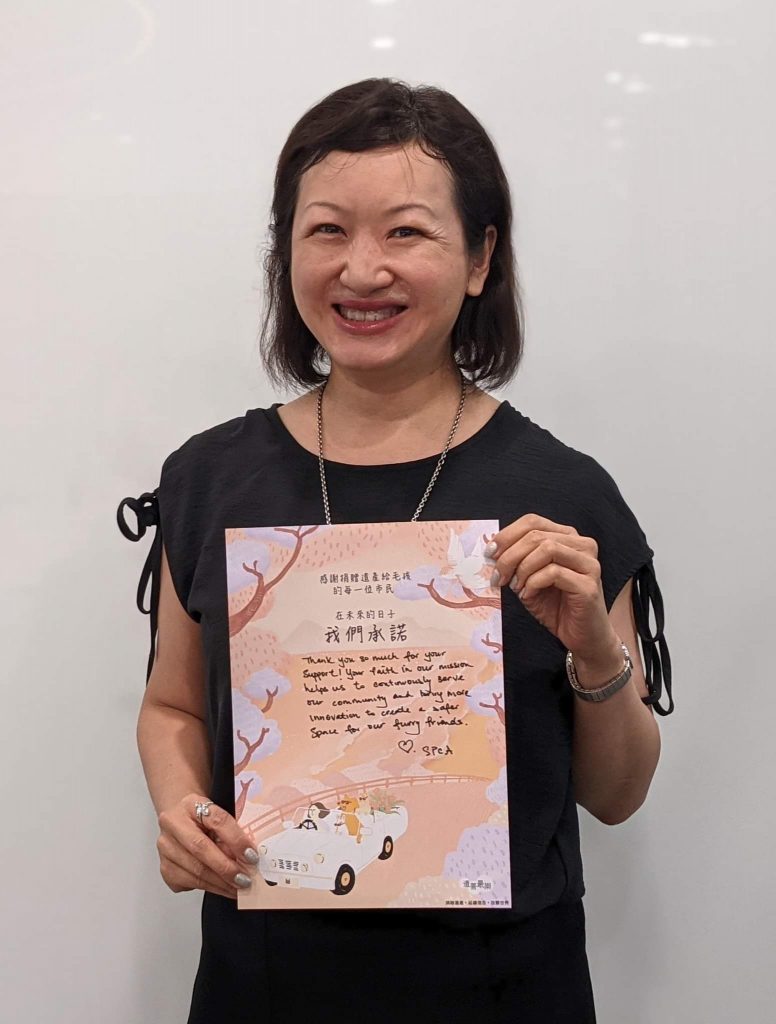 感謝捐贈遺產給毛孩
的每一位市民
在未來的日子
我們承諾
Thank you so much for your
support! Your faith in our mission
helps us to continuously serve
our community and bring more
innovation to create a safer
space for our furry friends.
♡. SPCA
遺善最樂